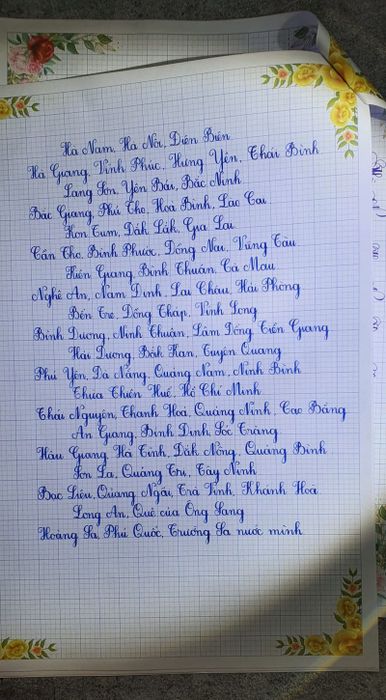 Hà Nam, Hà Nội, Điện Biên
Hà Giang, Vĩnh Phúc, Hưng Yên, Thái Bình
Lạng Sơn, Yên Bái, Bắc Ninh
Bắc Giang, Phú Thọ, Hoà Bình, Lào Cai
Kon Tum, Đắk Lắk, Gia Lai
Cần Thơ, Bình Phước, Đồng Nai, Vũng Tàu
Kiên Giang, Bình Thuận, Cà Mau
Nghệ An, Nam Định, Lai Châu, Hải Phòng
Bến Tre, Đồng Tháp, Vĩnh Long
Bình Dương, Ninh Thuận, Lâm Đồng Tiền Giang
Hải Dương, Bắk Kạn, Tuyên Quang
Phú Yên, Đà Nẵng, Quảng Nam, Ninh Bình
Thừa Thiên Huế, Hồ Chí Minh
Thái Nguyên, Thanh Hoá, Quảng Ninh, Cao Bằng
An Giang, Bình Định, Sóc Trăng
Hậu Giang, Hà Tĩnh, Đắk Nông, Quảng Bình
Sơn La, Quảng Trị, Tây Ninh
Bạc Liêu, Quảng Ngãi, Trà Vinh, Khánh Hoà
Long An, Quê của Ông Sang
Hoàng Sa, Phú Quốc, Trường Sa nước mình